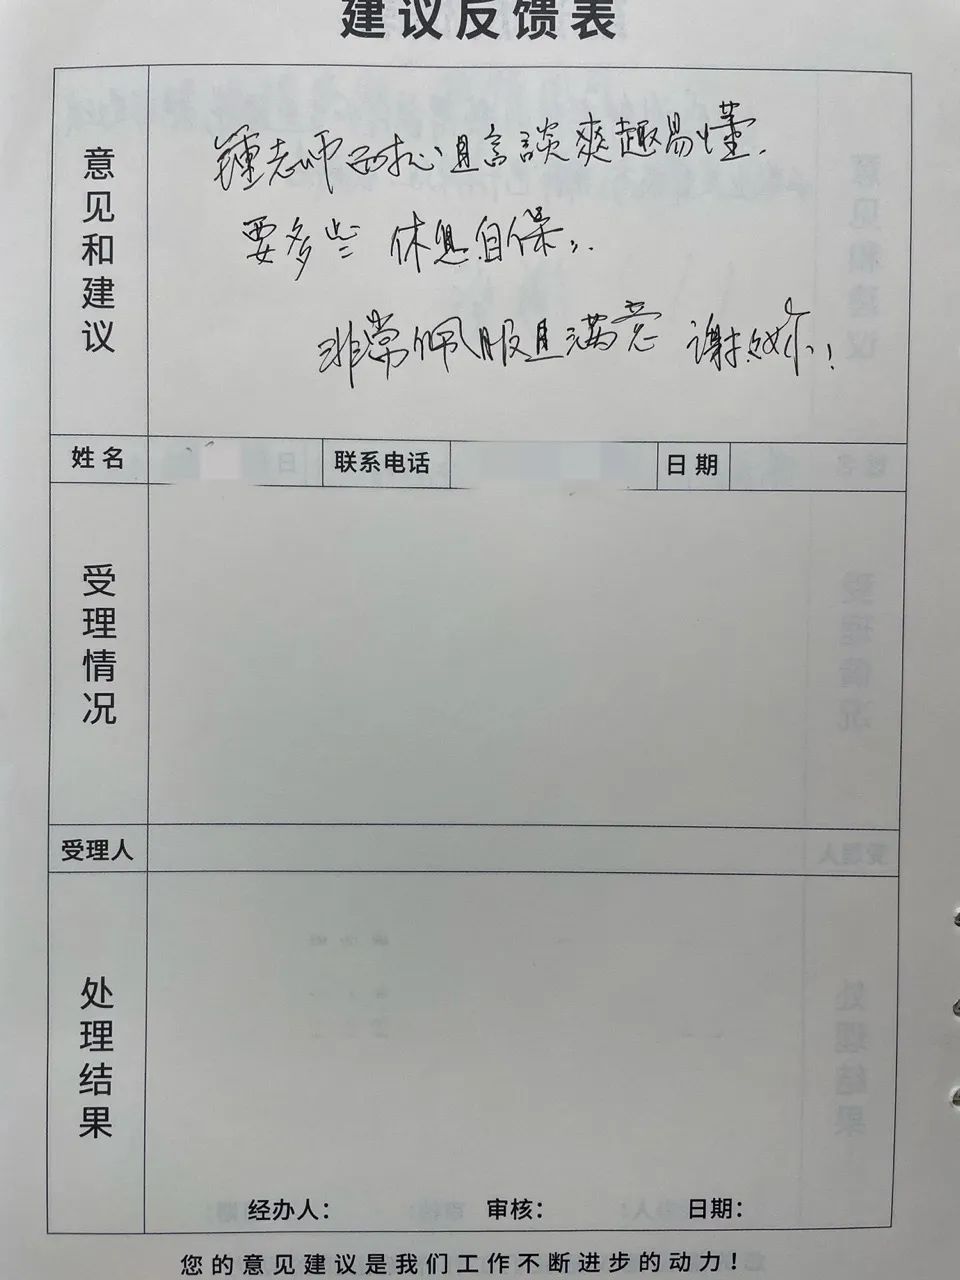 建议反馈表
意见和建议
鍾老师耐心且言談爽趣易懂.
要多些 休息自保;.
非常佩服且满意 谢谢你!
姓名
联系电话
日期
受理情况
受理人
处理结果
经办人：
审核：
日期：
您的意见建议是我们工作不断进步的动力！